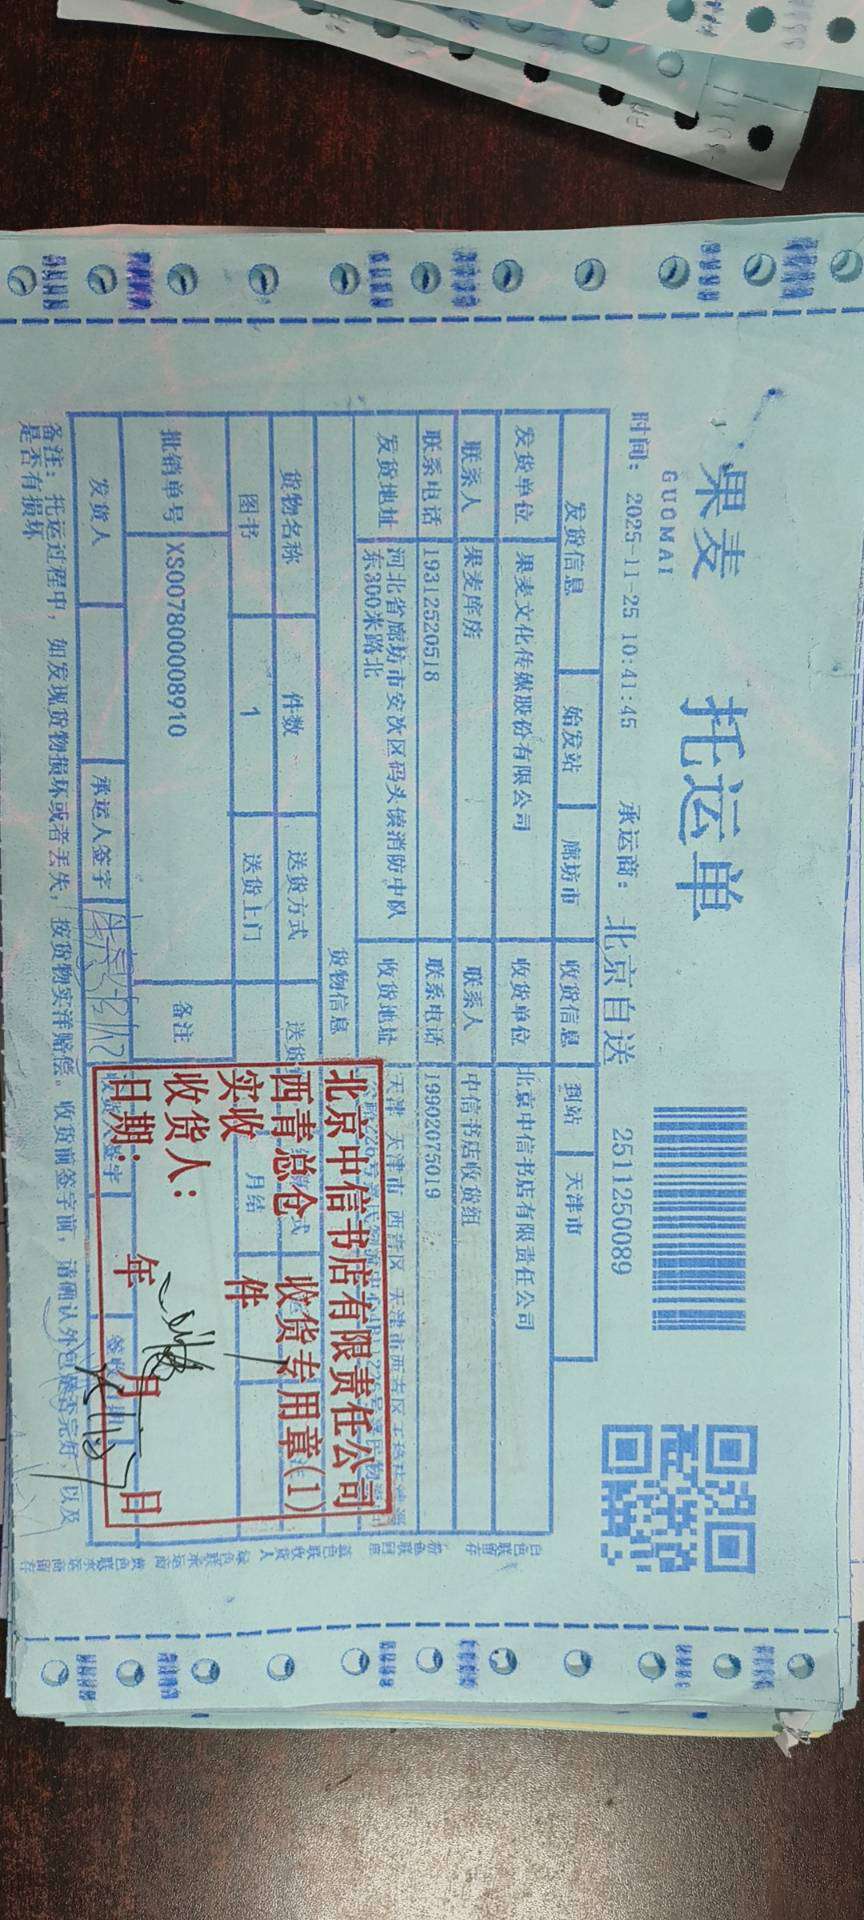 果麦 托运单
GUOMAI
时间: 2025-11-25 10:41:45 承运商: 北京自送 2511250089
发货信息 始发站 廊坊市 收货信息 到站 天津市
发货单位 果麦文化传媒股份有限公司 收货单位 北京中信书店有限责任公司
联系人 果麦库房 联系人 中信书店收货组
联系电话 19312520518 联系电话 19902075019
发货地址 河北省廊坊市安次区码头镇消防中队东300米路北 收货地址 天津 天津市 西青区 天津市西青区
货物信息
货物名称 件数 送货方式
图书 1 送货上门 月结
批销单号 XS007800008910 备注
发货人 承运人签字
备注: 托运过程中, 如发现货物损坏或者丢失, 按货物实洋赔偿。收货前签字前, 请确认外包是否完好, 以及
是否有损坏
北京中信书店有限责任公司
西青总仓 收货专用章(1)
实收 1 件
收货人:
日期: 年 月 日